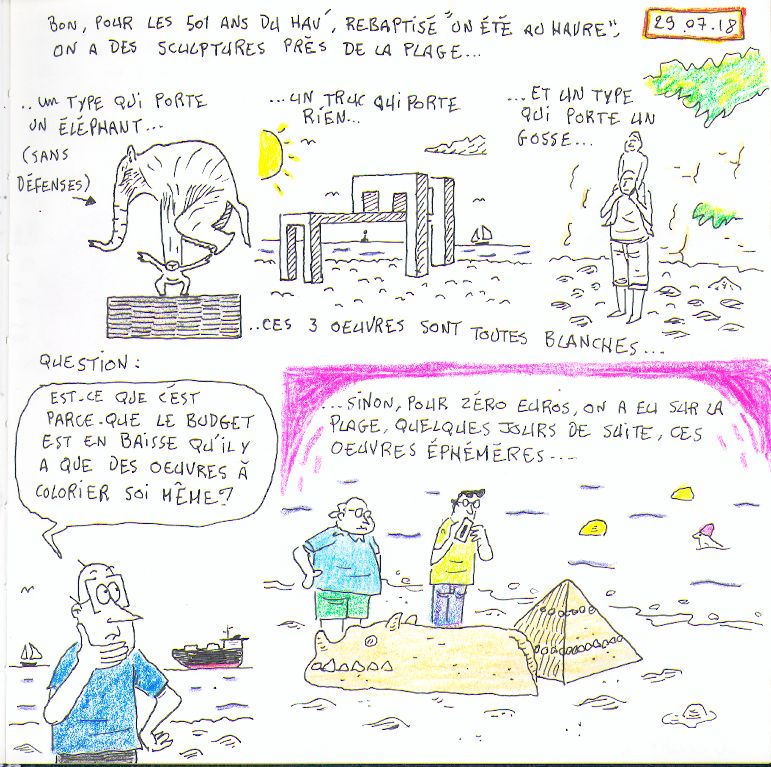 BON, POUR LES 501 ANS DU HAV', REBAPTISÉ "UN ÉTÉ AU HAVRE",
ON A DES SCULPTURES PRÈS DE LA PLAGE...
29.07.18
..UN TYPE QUI PORTE
UN ÉLÉPHANT...
(SANS
DÉFENSES)
...UN TRUC QUI PORTE
RIEN...
...ET UN TYPE
QUI PORTE UN
GOSSE...
..CES 3 OEUVRES SONT TOUTES BLANCHES...
QUESTION:
EST-CE QUE C'EST
PARCE-QUE LE BUDGET
EST EN BAISSE QU'IL Y
A QUE DES OEUVRES À
COLORIER SOI MÊME?
...SINON, POUR ZÉRO EUROS, ON A EU SUR LA
PLAGE, QUELQUES JOURS DE SUITE, CES
OEUVRES ÉPHÉMÈRES...